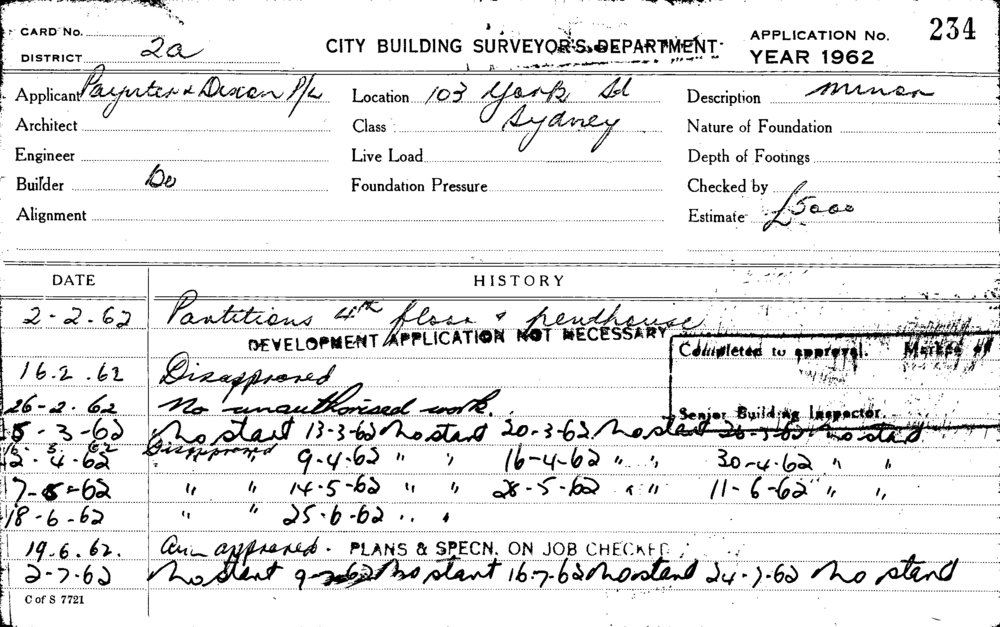 CARD No.
DISTRICT 2a
CITY BUILDING SURVEYOR'S DEPARTMENT
APPLICATION No. 234
YEAR 1962
Applicant Paynter & Dixon P/L
Location 103 York St
Sydney
Description Minor
Architect
Class
Nature of Foundation
Engineer
Live Load
Depth of Footings
Builder Do
Foundation Pressure
Checked by
Alignment
Estimate £5000
DATE HISTORY
2-2-62 Partitions 4th floor & penthouse
DEVELOPMENT APPLICATION NOT NECESSARY
Completed to approval. Marked off
16.2.62 Disapproved
26-2-62 No unauthorised work.
Senior Building Inspector.
5-3-62 No start 13-3-62 No start 20-3-62 No start 26-3-62 No start
Disapproved
2-4-62 " " 9-4-62 " " 16-4-62 " " 30-4-62 " "
7-5-62 " " 14-5-62 " " 28-5-62 " " 11-6-62 " "
18-6-62 " " 25-6-62 " "
19.6.62. approved. PLANS & SPECN. ON JOB CHECKED
2-7-62 No start 9-7-62 No start 16-7-62 No start 24-7-62 No start
C of S 7721